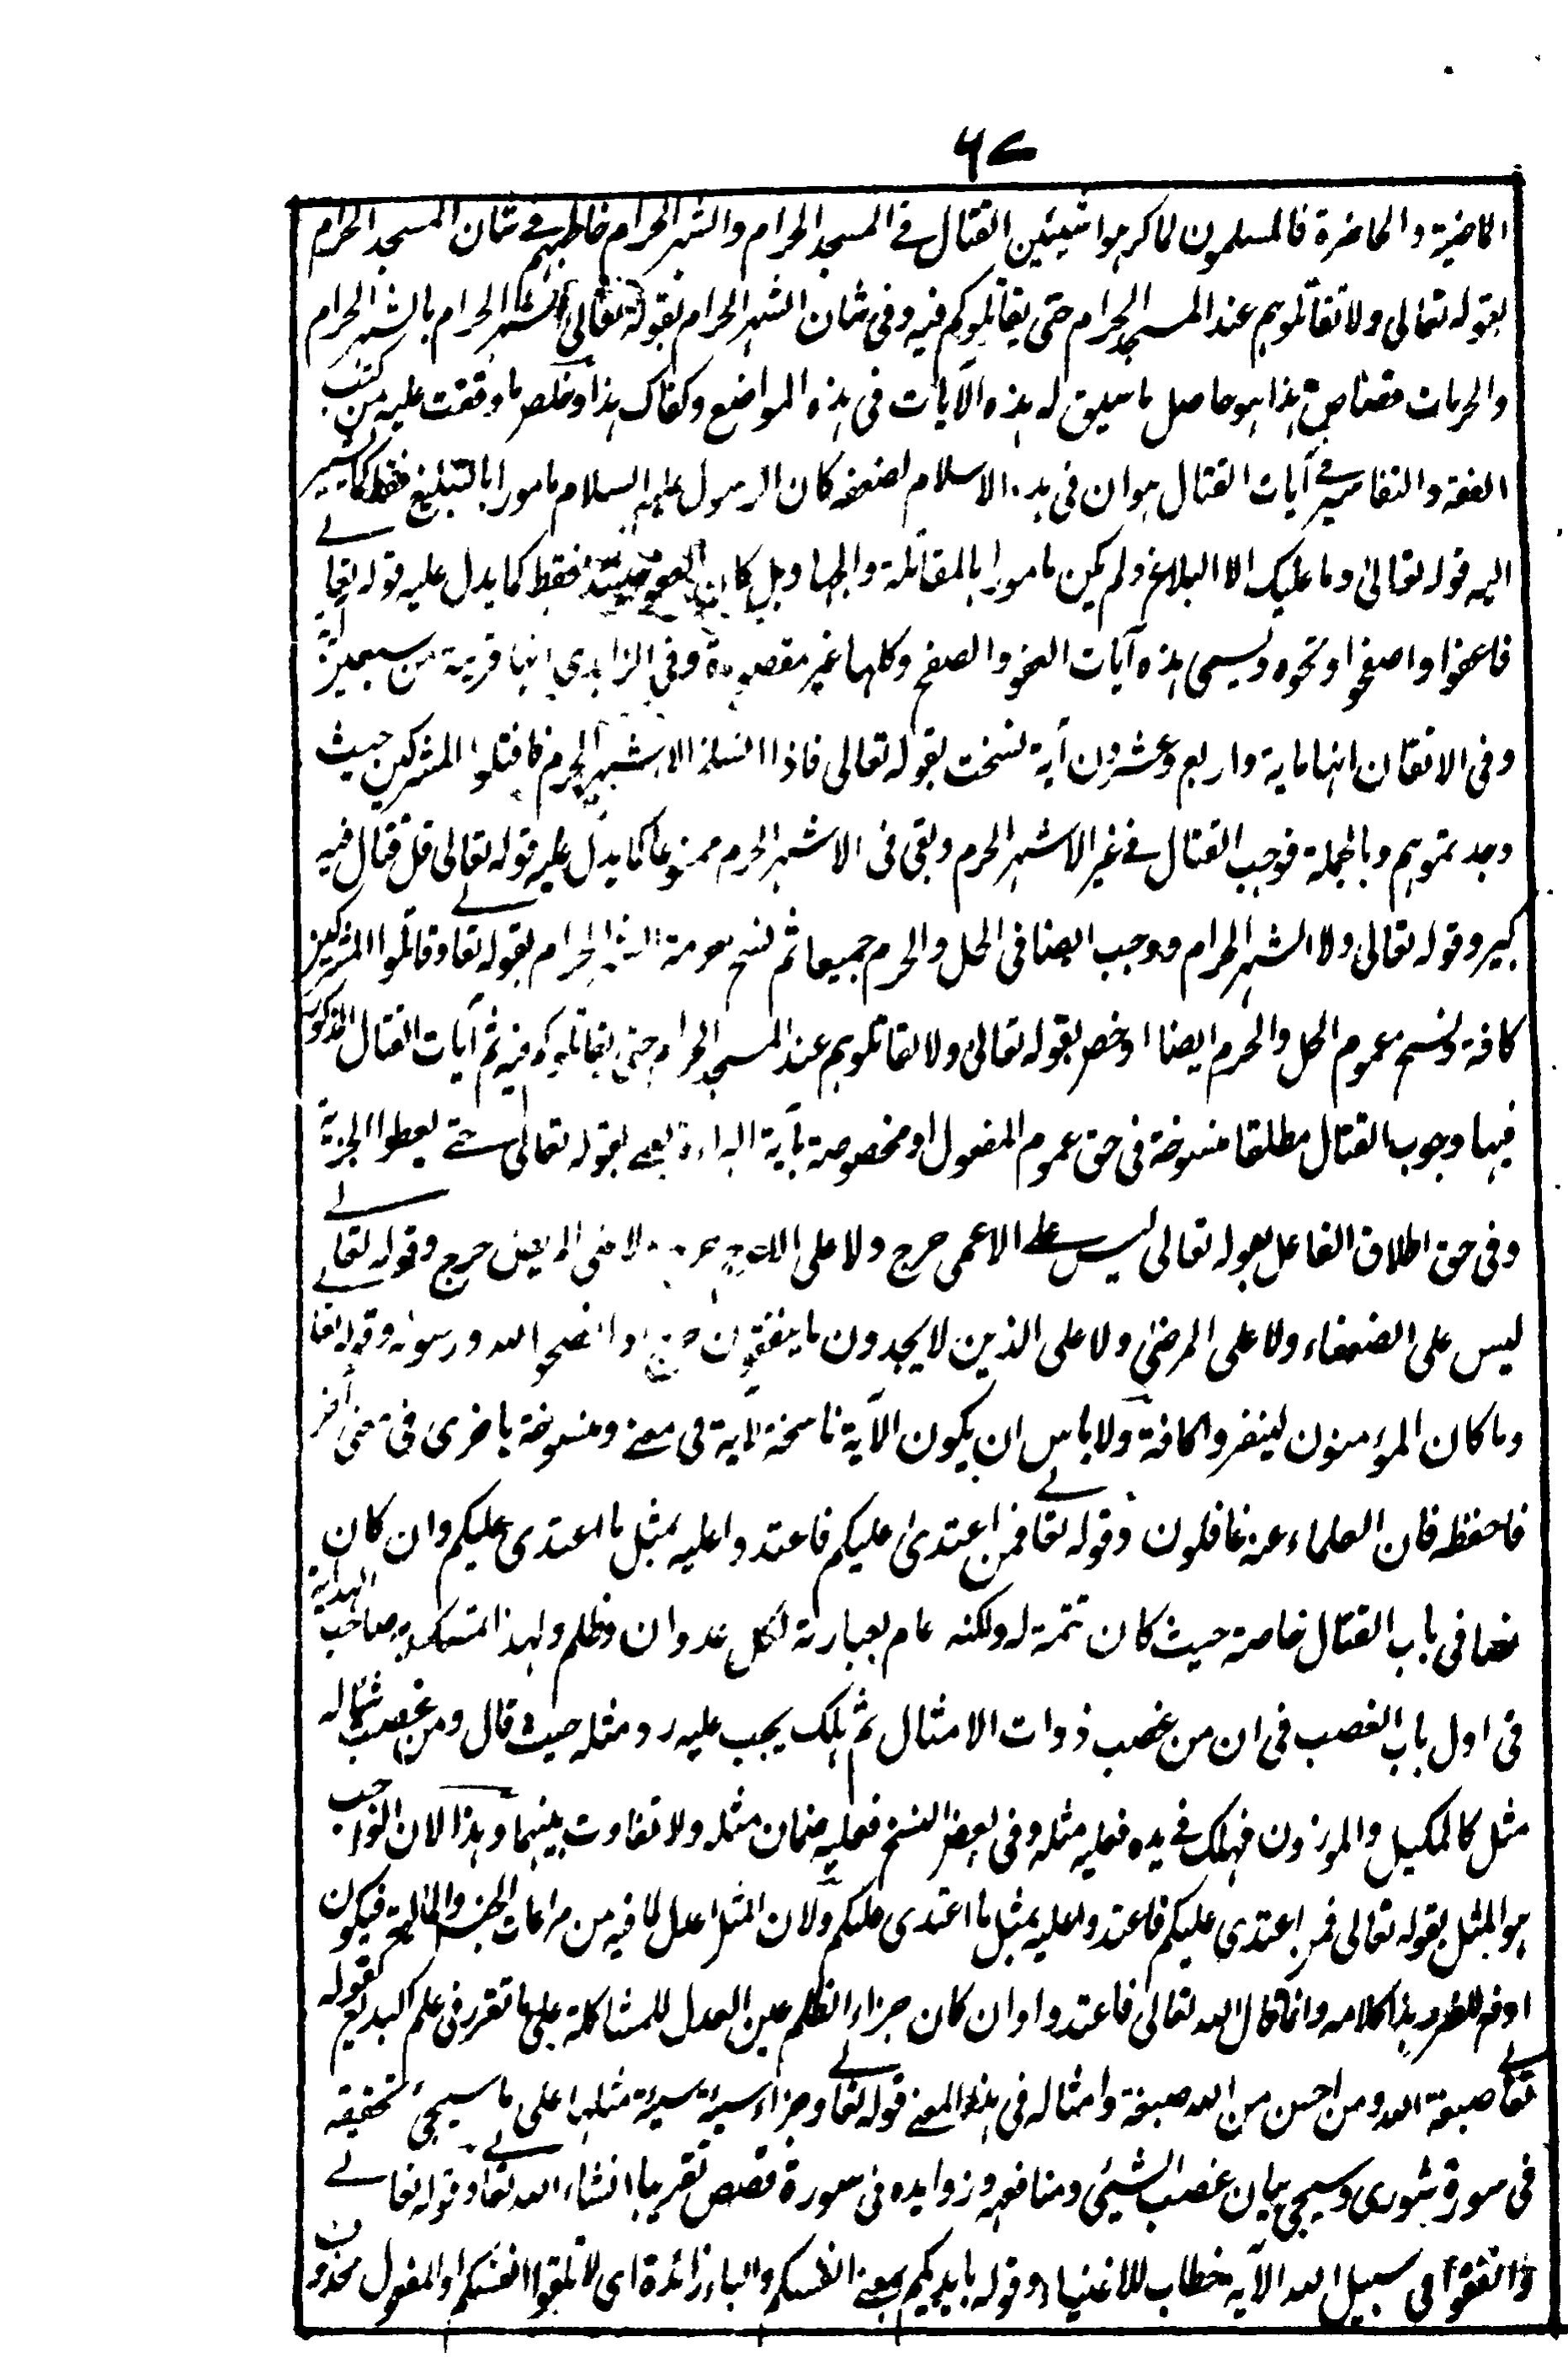 ٦٧
الماضية والحاضرة فالمسلمون لما كرهوا شيئين القتال فے المسجد الحرام والشهر الحرام خاطبهم فے شان المسجد الحرام
بقوله تعالى ولا تقاتلوهم عند المسجد الحرام حتى يقاتلوكم فيه وفى شان الشهر الحرام بقوله تعالى الشهر الحرام بالشهر الحرام
والحرمات قصاص هذا هو حاصل ما سيق له هذه الآيات فى هذه المواضع وكفاك هذا وملخص ما وقفت عليه من كتب
الفقه والتفاسير فے آيات القتال هو ان فى بدء الاسلام لضعفه كان الرسول عليه السلام مامورا بالتبليغ فقط كما يشير
اليه قوله تعالى وما عليك الا البلاغ ولم يكن مامورا بالمقاتلة والجهاد بل كان العفو حينئذ فقط كما يدل عليه قوله تعالے
فاعفوا واصفحوا ونحوه ويسمى هذه آيات العفو والصفح وكلها غير مقصودة وفى الزاهدي انها قريبة من سبعين آية
وفى الاتقان انها ماية واربع وعشرون آية نسخت بقوله تعالى فاذا انسلخ الاشهر الحرم فاقتلوا المشركين حيث
وجدتموهم وبالجملة فوجب القتال فے غير الاشهر الحرم وبقى فى الاشهر الحرم ممنوعا كما يدل عليه قوله تعالى قل قتال فيه
كبير وقوله تعالى ولا الشهر الحرام ووجب ايضا فى الحل والحرم جميعا ثم نسخ حرمة الشهر الحرام بقوله تعالے وقاتلوا المشركين
كافة ونسخ عموم الحل والحرم ايضا او خص بقوله تعالى ولا تقاتلوهم عند المسجد الحرام حتى يقاتلوكم فيه ثم آيات القتال المذكور
فيها وجوب القتال مطلقا منسوخة فى حق عموم المفعول او مخصوصة بآية البراءة يعنے بقوله تعالى حتے يعطوا الجزية
وفى حق اطلاق الفاعل بقوله تعالى ليس علے الاعمى حرج ولا على الاعرج حرج ولا على المريض حرج وقوله تعالے
ليس على الضعفاء ولا على المرضى ولا على الذين لا يجدون ما ينفقون حرج اذا نصحوا لله ورسوله وقوله تعالے
وما كان المؤمنون لينفروا كافة ولا باس ان يكون الآية ناسخة لآية فى معنے ومنسوخة باخرى فى معنى آخر
فاحفظه فان العلماء عنه غافلون وقوله تعالے فمن اعتدى عليكم فاعتدوا عليه بمثل ما اعتدى عليكم وان كان
نصا فى باب القتال خاصة حيث كان تتمة له ولكنه عام بعبارته لكل عدوان وظلم ولهذا تمسك به صاحب الهداية
فى اول باب الغصب فى ان من غصب ذوات الامثال ثم هلك يجب عليه رد مثله حيث قال ومن غصب شيئا له
مثل كالمكيل والموزون فهلك فے يده فعليه مثله وفى بعض النسخ فعليه ضمان مثله ولا تفاوت بينهما وهذا لان الواجب
هو المثل بقوله تعالى فمن اعتدى عليكم فاعتدوا عليه بمثل ما اعتدى عليكم ولان المثل اعدل لما فيه من مراعات الجنس والمالية فيكون
ادفع للضرر هذا كلامه وانما قال الله تعالى فاعتدوا وان كان جزاء الظلم عين العدل للمشاكلة على ما تقرر فى علم البديع كقوله
تعالے صبغة الله ومن احسن من الله صبغة وامثاله فى هذا المعنے قوله تعالے وجزاء سيئة سيئة مثلها على ما سيجئ تحقيقه
فى سورة شورى وسيجئ بيان غصب الشيئ ومنافعه وزوايده فى سورة قصص تقريبا انشاء الله تعالے وقوله تعالے
وانفقوا فى سبيل الله الآية خطاب للاغنياء وقوله بايديكم بمعنے انفسكم والباء زائدة اى لا تلقوا انفسكم او المفعول محذوف